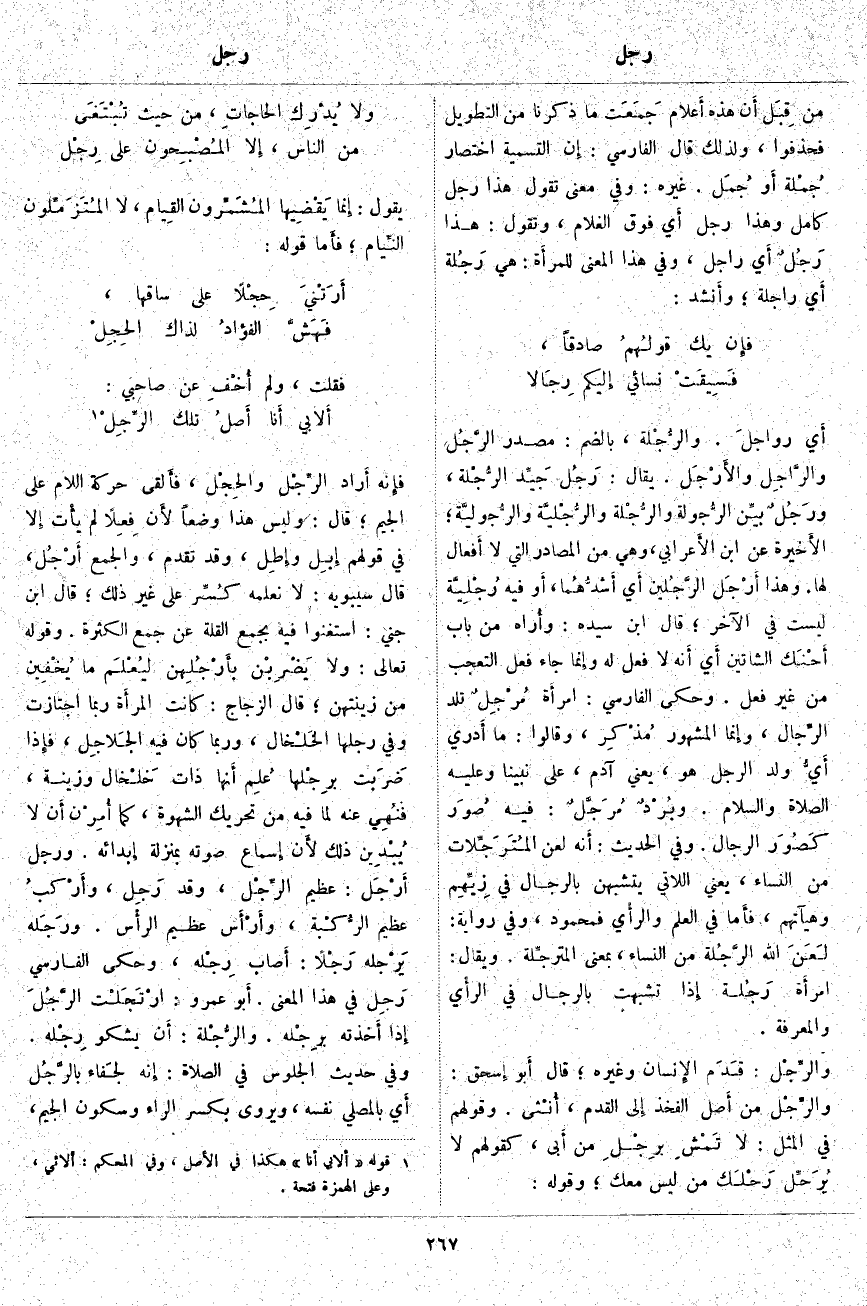 رجل
رجل
من قِبَل أن هذه أعلام جَمَعَت ما ذكرنا من التطويل
فحذفوا ، ولذلك قال الفارسي : إن التسمية اختصار
جُمْلة أو جُمَل . غيره : وفي معنى تقول هذا رجل
كامل وهذا رجل أي فوق الغلام ، وتقول : هـذا
رَجُلٌ أي راجل ، وفي هذا المعنى للمرأة : هي رَجُلة
أي راجلة ؛ وأنشد :
فإن يك قولُهمُ صادقاً ،
فَسِيقَتْ نسائي إليكم رِجَالا
أي رواجلَ . والرُّجْلة ، بالضم : مصـدر الرَّجُل
والرَّاجِل والأَرْجَل . يقال : رَجُل جَيِّد الرُّجلة ،
ورَجُلٌ بيِّن الرُّجولة والرُّجْلة والرُّجْليَّة والرُّجوليَّة ؛
الأخيرة عن ابن الأعرابي، وهي من المصادر التي لا أفعال
لها. وهذا أرْجَل الرَّجُلين أي أشدُّهُما، أو فيه رُجْلِيَّة
ليست في الآخر ؛ قال ابن سيده : وأراه من باب
أحْنَك الشاتين أي أنه لا فعل له وإنما جاء فعل التعجب
من غير فعل . وحكى الفارسي : امرأة مُرْجِلٌ تلد
الرِّجال ، وإنما المشهور مُذْكِر ، وقالوا : ما أدري
أيُّ ولد الرجل هو ، يعني آدم ، على نبينا وعليـه
الصلاة والسلام . وبُرْدٌ مُرَجَّلٌ : فيـه صُوَر
كَصُوَر الرجال . وفي الحديث : أنه لعن المُتَرَجِّلات
من النساء ، يعني اللاتي يتشبهن بالرجـال في زِيِّهِم
وهيآتهم ، فأما في العلم والرأي فمحمود ، وفي رواية:
لَعَنَ الله الرَّجُلة من النساء ، بمعنى المترجِّلة . ويقال:
امرأة رَجُلـة إذا تشبهت بالرجـال في الرأي
والمعرفة .
والرِّجْل : قَـدَم الإنسان وغيره ؛ قال أبو إسحق :
والرِّجْل من أصل الفخذ إلى القدم ، أُنْثى . وقولهم
في المثل : لا تَمْشِ بِرِجْـلِ من أبى ، كقولهم لا
يُرَحِّل رَحْلَـك من ليس معك ؛ وقوله :
ولا يُدْرِك الحاجاتِ ، من حيث تُبْتَغَى
من الناس ، إلا المُصْبِحون على رِجْل
يقول : إنما يَقْضِيها المُشَمِّرون القِيام ، لا المُتَزَمِّلون
النِّيام ؛ فأما قوله :
أرَتْنيَ حِجْلًا على ساقها ،
فَهَشَّ الفؤادُ لذاك الحِجِلْ
فقلت ، ولم أُخْفِ عن صاحِبي :
ألابي أنا أصلُ تلك الرِّجِلْ١
فإنه أراد الرِّجْل والحِجْل ، فألقى حركة اللام على
الجيم ؛ قال : وليس هذا وضعاً لأن فِعِلًا لم يأت إلا
في قولهم إبِـل وإطِل ، وقد تقدم ، والجمع أرْجُل ،
قال سيبويه : لا نعلمه كُسِّر على غير ذلك ؛ قال ابن
جني : استغنوا فيه بجمع القلة عن جمع الكثرة . وقوله
تعالى : ولا يَضْرِبْن بأرْجُلِهن لِيُعْلَـم ما يُخْفين
من زينتهن ؛ قال الزجاج : كانت المرأة ربما اجتازت
وفي رجلها الخَلـْخال ، وربما كان فيه الجَلاجِل ، فإذا
ضَرَبت بِرِجْلها عُلِم أنها ذات خَلْخال وزينـة ،
فنُهِي عنه لما فيه من تحريك الشهوة ، كما أُمِرْن أن لا
يُبْدِين ذلك لأن إسماع صوته بمنزلة إبدائه . ورجل
أرْجَل : عظيم الرِّجْل ، وقد رَجِل ، وأرْكَبُ
عظيم الرُّكْبة ، وأرْأَس عظـيم الرأس . ورَجَله
يَرْجله رَجْلًا : أصاب رِجْله ، وحكى الفـارسي
رَجِل في هذا المعنى . أبو عمرو : ارْتَجَلْت الرَّجُلَ
إذا أخذته برِجْله . والرُّجْلة : أن يشكو رِجْله .
وفي حديث الجلوس في الصلاة : إنه لجَفاء بالرَّجُل
أي بالمصلي نفسه ، ويروى بكسر الراء وسكون الجيم،
١ قوله « ألابي أنا » هكذا في الأصل ، وفي المحكم : ألائي ،
وعلى الهمزة فتحة .
٢٦٧